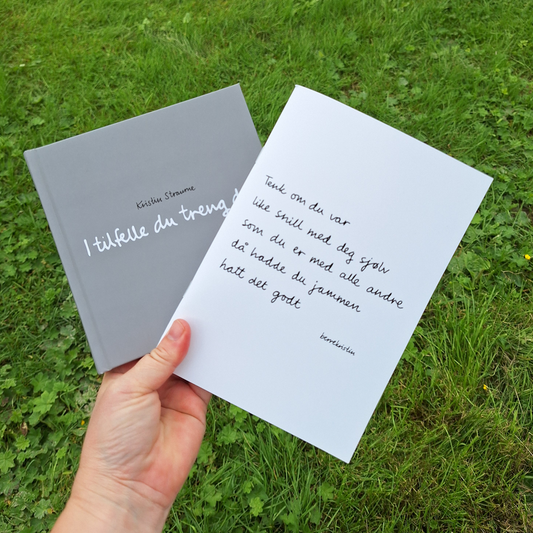 Kristin Straume
I tilfelle du treng d
Tenk om du var
like snill med deg sjølv
som du er med alle andre
då hadde du jammen
hatt det godt
berrekristin